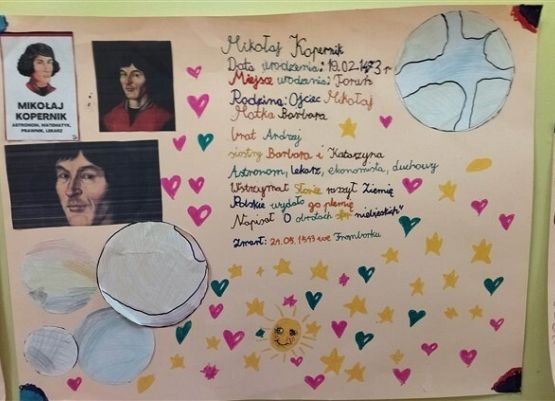 MIKOŁAJ
KOPERNIK
ASTRONOM, MATEMATYK,
PRAWNIK, LEKARZ
Mikołaj Kopernik
Data urodzenia: 19.02.1473 r
Miejsce urodzenia: Toruń
Rodzina: Ojciec Mikołaj
Matka Barbara
brat Andrzej
siostry Barbara i Katarzyna
Astronom, lekarz, ekonomista, duchowy
Wstrzymał Słońce ruszył Ziemię
Polskie wydało go plemię
Napisał O obrotach niebieskich"
Zmarł: 21.05.1543 we Fromborku